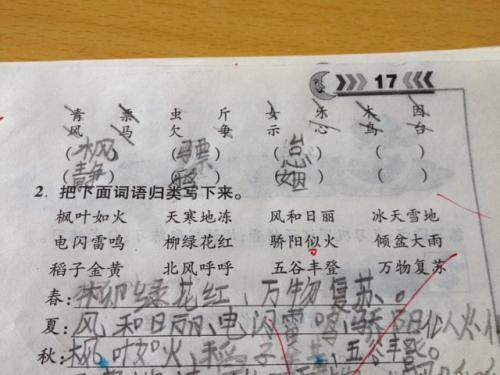 17
青 票 虫 斤 女 乐 木 因
风 马 欠 争 示 心 鸟 台
(枫) (骠) ( ) ( )
( ) ( ) ( ) ( )
2. 把下面词语归类写下来。
枫叶如火 天寒地冻 风和日丽 冰天雪地
电闪雷鸣 柳绿花红 骄阳似火 倾盆大雨
稻子金黄 北风呼呼 五谷丰登 万物复苏
春:柳绿花红、万物复苏。
夏:风和日丽、电闪雷鸣、骄阳似火、
秋:枫叶如火、稻子金黄、五谷丰登。